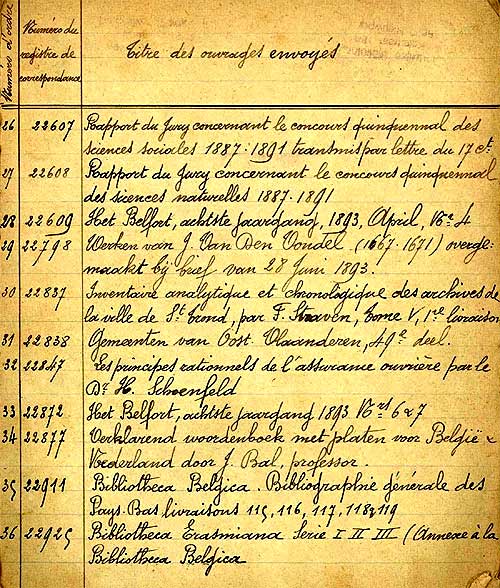 Numéro d'ordre
Numéro du
registre de
correspondance
Titre des ouvrages envoyés
26 22607 Rapport du Jury concernant le concours quinquennal des
sciences sociales 1887-1891 transmis par lettre du 17 ct.
27 22608 Rapport du Jury concernant le concours quinquennal
des sciences naturelles 1887-1891
28 22609 Het Belfort, achtste jaargang, 1893, April, Nr. 4
29 22798 Werken van J. Van Den Vondel (1667-1671) overge-
maakt bij brief van 28 Juni 1893.
30 22837 Inventaire analytique et chronologique des archives de
la ville de St Trond, par F. Straven, tome V, 1re livraison
31 22838 Gemeenten van Oost-Vlaanderen, 49e deel.
32 22847 Les principes rationnels de l'assurance ouvrière par le
Dr H. Schoenfeld
33 22872 Het Belfort, achtste jaargang 1893 Nrs 6 & 7
34 22877 Verklarend woordenboek met platen voor België &
Nederland door J. Bal, professor.
35 22911 Bibliotheca Belgica. Bibliographie générale des
Pays-Bas livraisons 115, 116, 117, 118 & 119
36 22925 Bibliotheca Erasmiana Serie I II III (Annexe à la
Bibliotheca Belgica